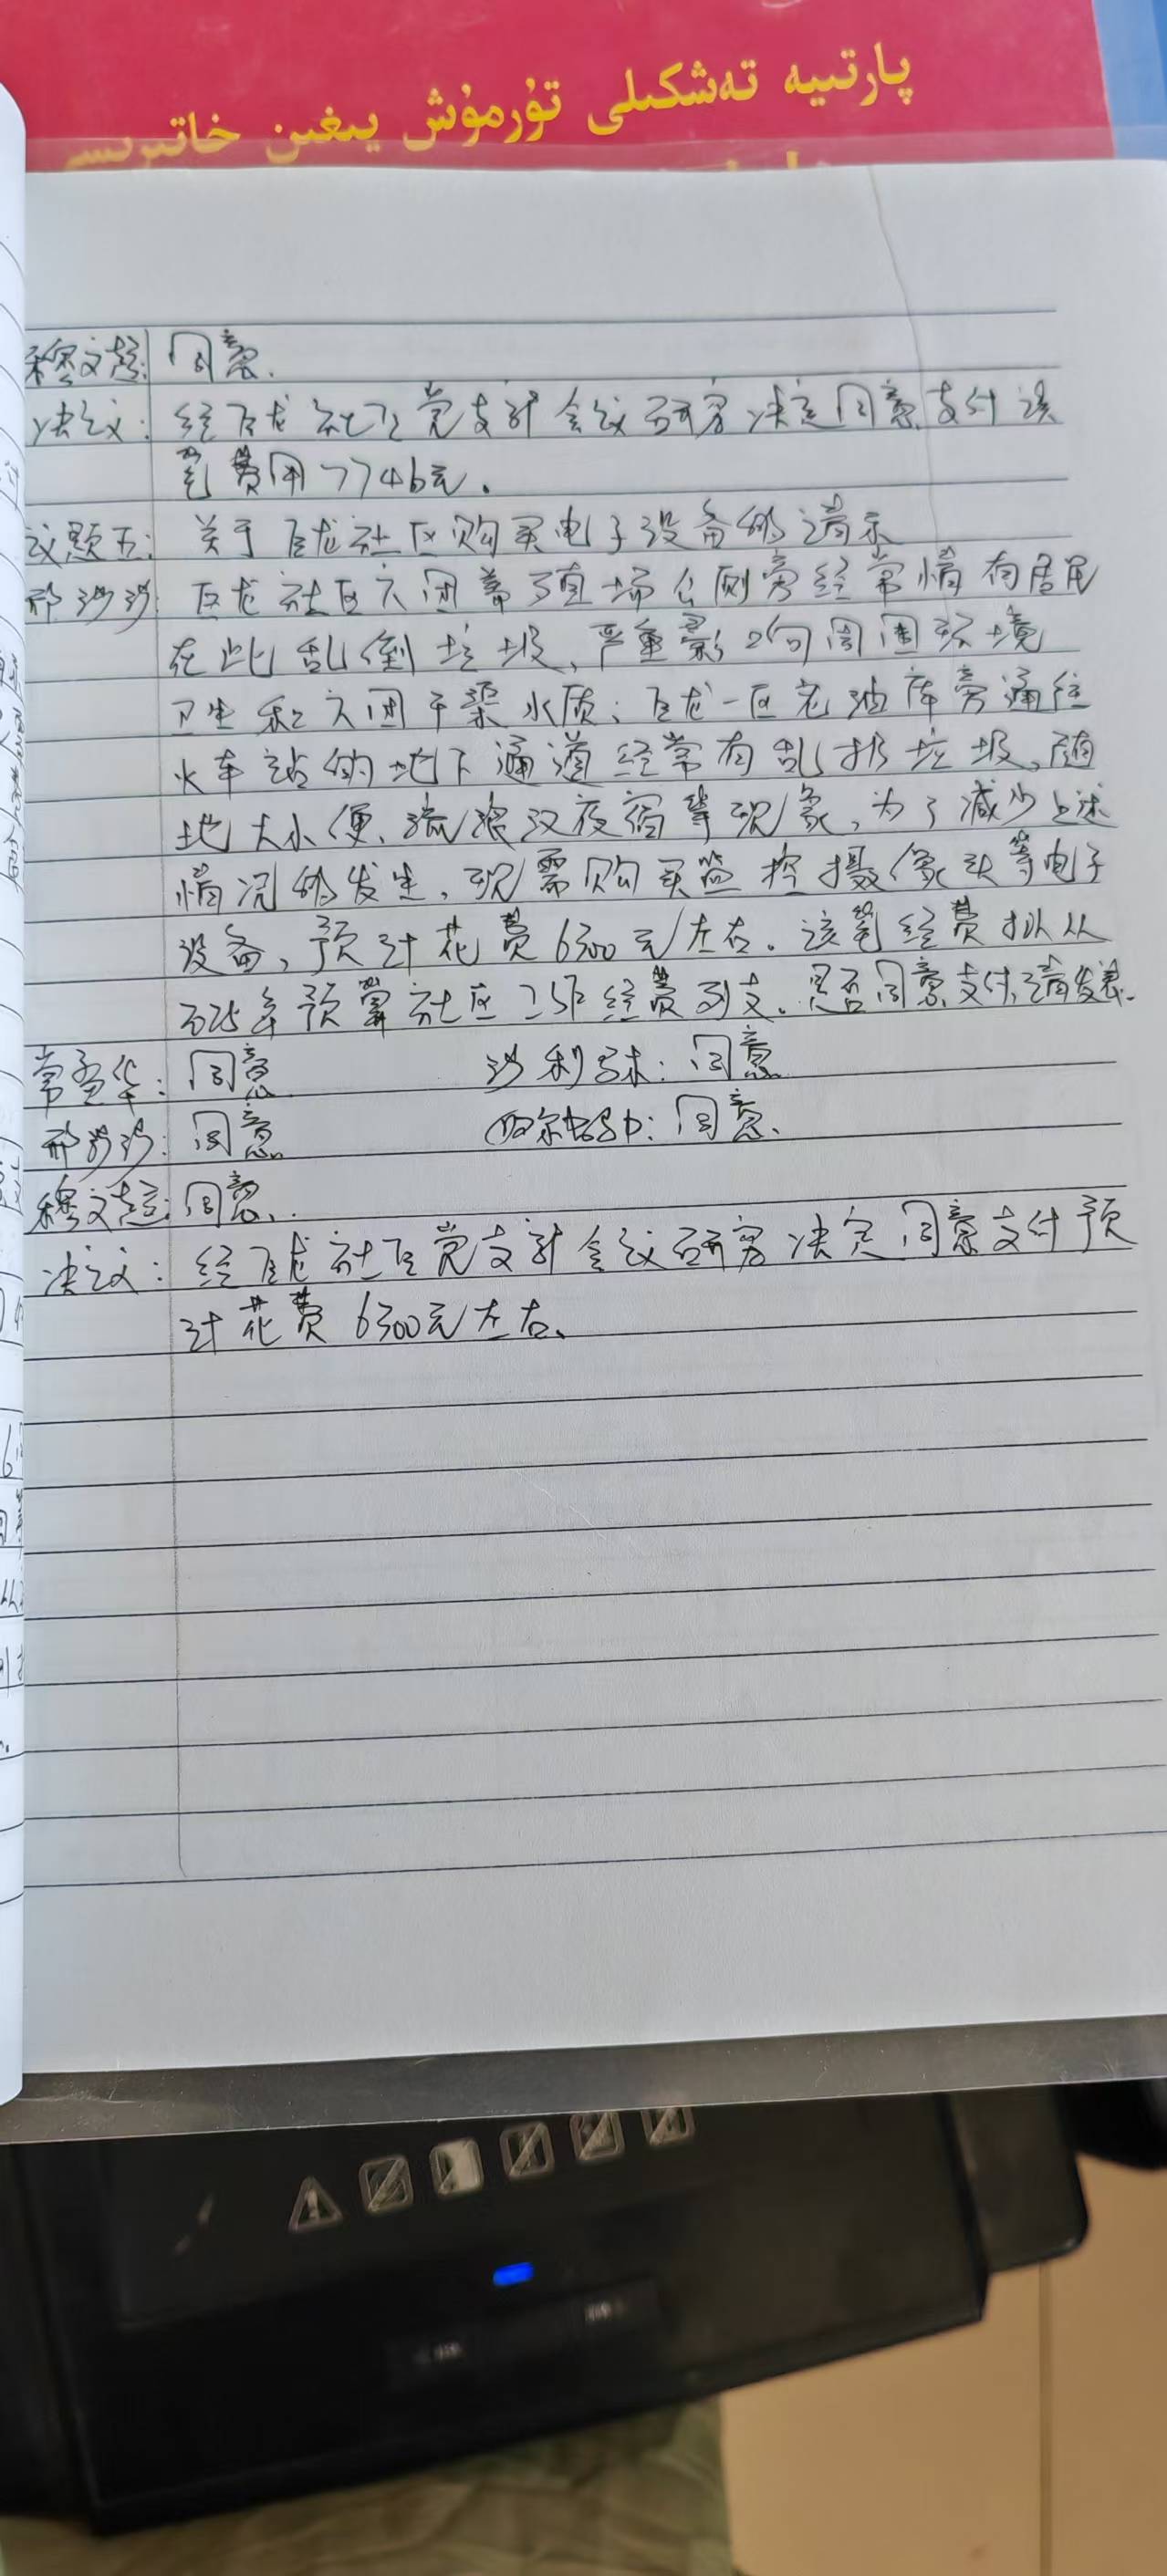 پارتىيە تەشكىلى تۇرمۇش يىغىن خاتىرىسى
穆文超: 同意.
决议: 经巨龙社区党支部会议研究决定同意支付该
笔费用7746元.
议题五: 关于巨龙社区购买电子设备的请示
邢沙沙: 巨龙社区六团养殖场公厕旁经常情有居民
在此乱倒垃圾,严重影响周围环境
卫生和六团干渠水质;巨龙一区老油库旁通往
火车站的地下通道经常有乱扔垃圾、随
地大小便、流浪汉夜宿等现象,为了减少上述
情况的发生,现需购买监控摄像头等电子
设备,预计花费6300元左右。该笔经费拟从
2025年预算社区工作经费列支。是否同意支付,请发表.
常孟华: 同意 沙利木: 同意
邢沙沙: 同意 同意.
穆文超: 同意.
决议: 经巨龙社区党支部会议研究决定同意支付预
计花费6300元左右.